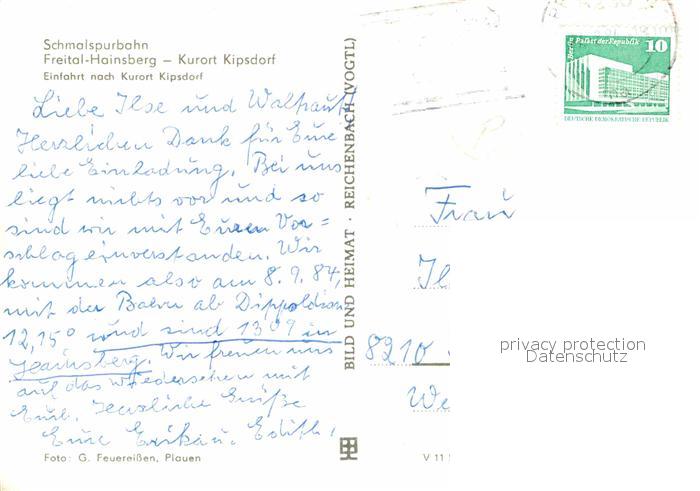 Schmalspurbahn
Freital-Hainsberg – Kurort Kipsdorf
Einfahrt nach Kurort Kipsdorf
Liebe Ilse und Waltraut!
Herzlichen Dank für Eure
liebe Einladung. Bei uns
liegt nichts vor und so
sind wir mit Euren Vor=
schlag einverstanden. Wir
kommen also am 8. 9. 84,
mit der Bahn ab Dippoldisw.
12,15° und sind 13°9 in
Hainsberg. Wir freuen uns
auf das wiedersehen mit
Euch. Herzliche Grüße
Eure Erika u. Edith!
Foto: G. Feuereißen, Plauen
BILD UND HEIMAT · REICHENBACH (VOGTL)
V 11
Berlin Palast der Republik
10
DEUTSCHE DEMOKRATISCHE REPUBLIK
Frau
Il
8210
We
privacy protection
Datenschutz